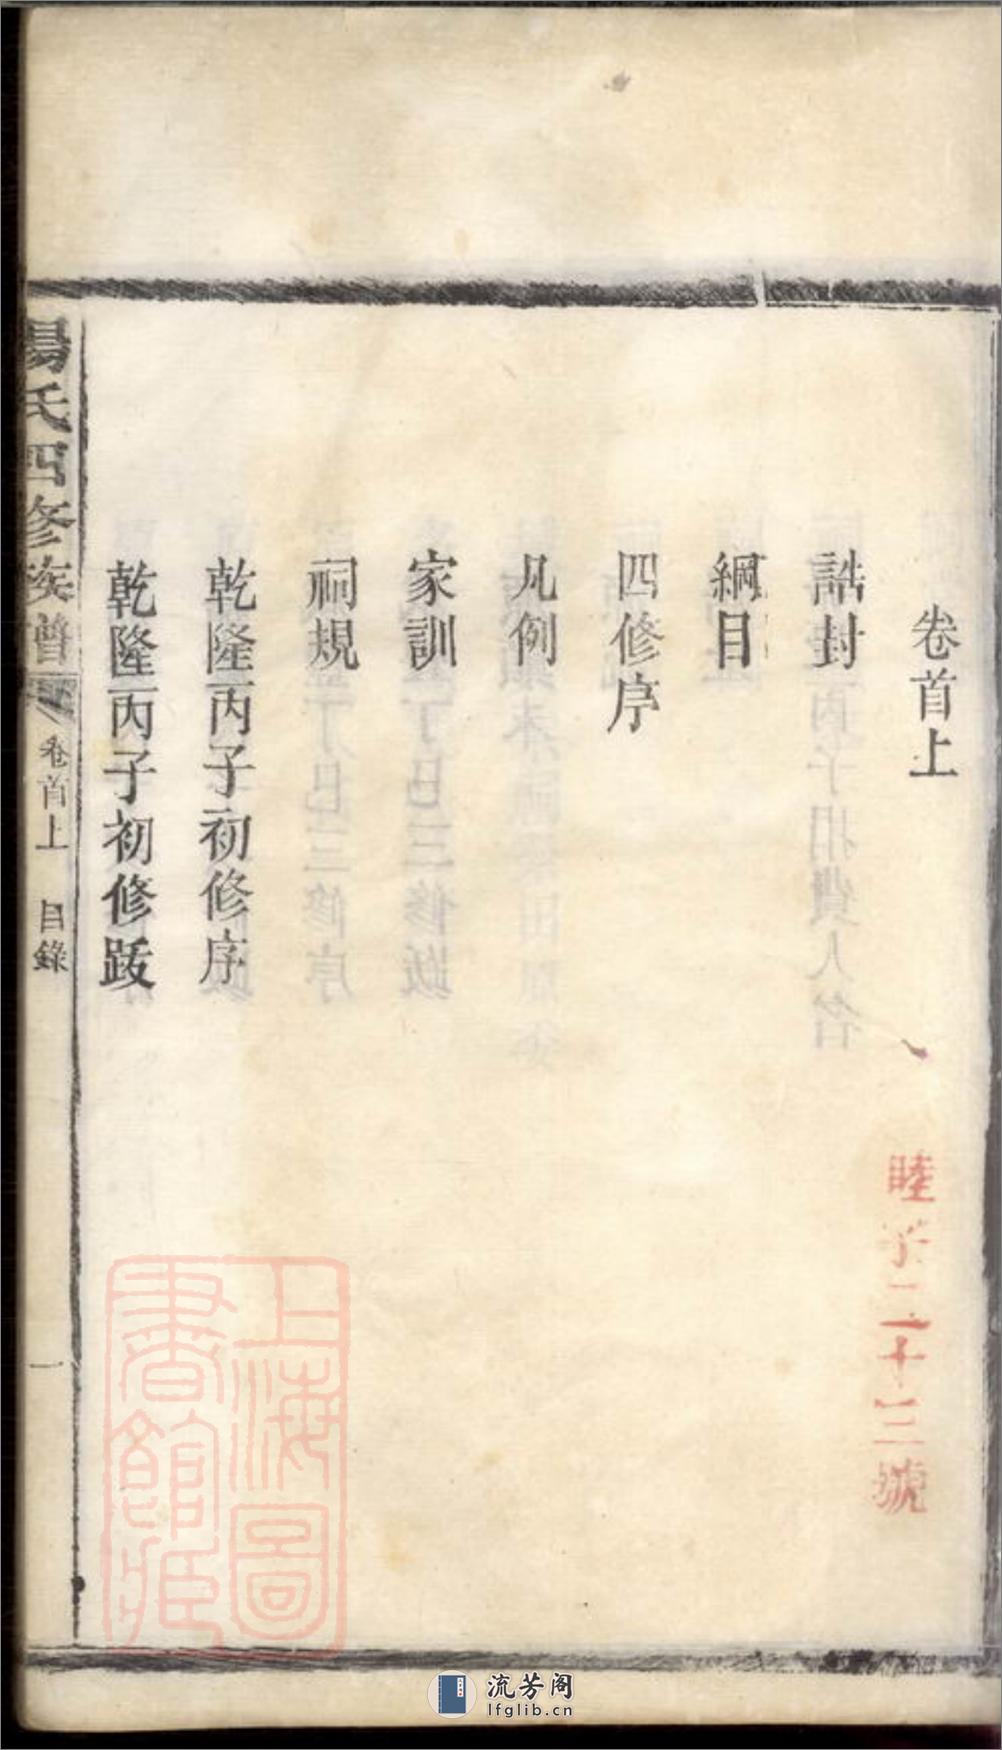 卷首上
誥封
綱目
四修序
凡例
家訓
祠規
乾隆丙子初修序
乾隆丙子初修跋
氏四修族譜
卷首上
目錄
一
睦字二十三號
上海圖
書館藏
流芳阁
lfglib.cn